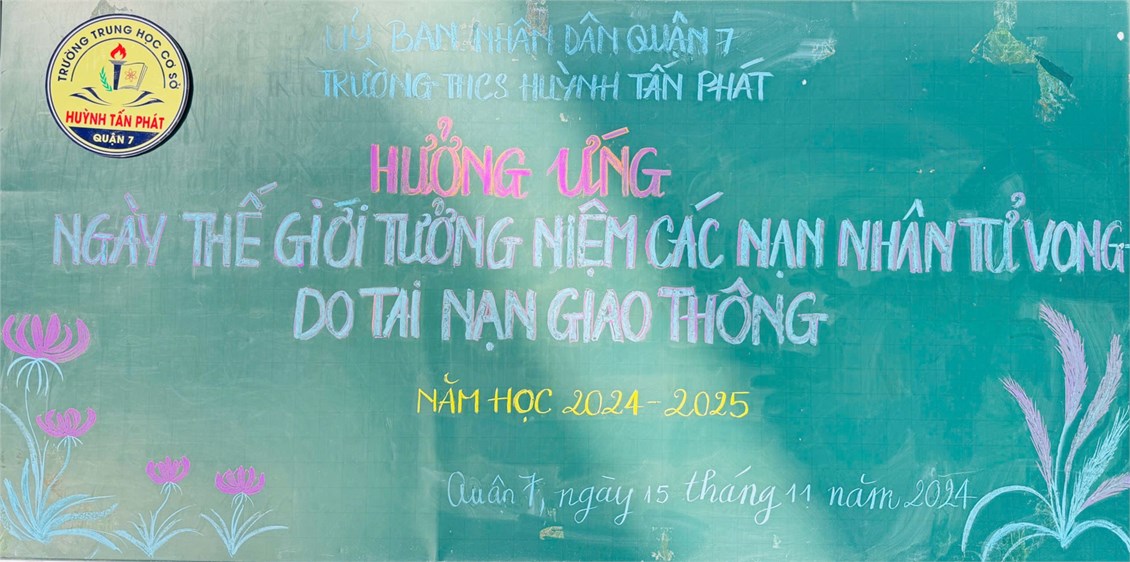 TRƯỜNG TRUNG HỌC CƠ SỞ
HUỲNH TẤN PHÁT
QUẬN 7
ỦY BAN NHÂN DÂN QUẬN 7
TRƯỜNG THCS HUỲNH TẤN PHÁT
HƯỞNG ỨNG
NGÀY THẾ GIỚI TƯỞNG NIỆM CÁC NẠN NHÂN TỬ VONG
DO TAI NẠN GIAO THÔNG
NĂM HỌC 2024-2025
Quận 7, ngày 15 tháng 11 năm 2024